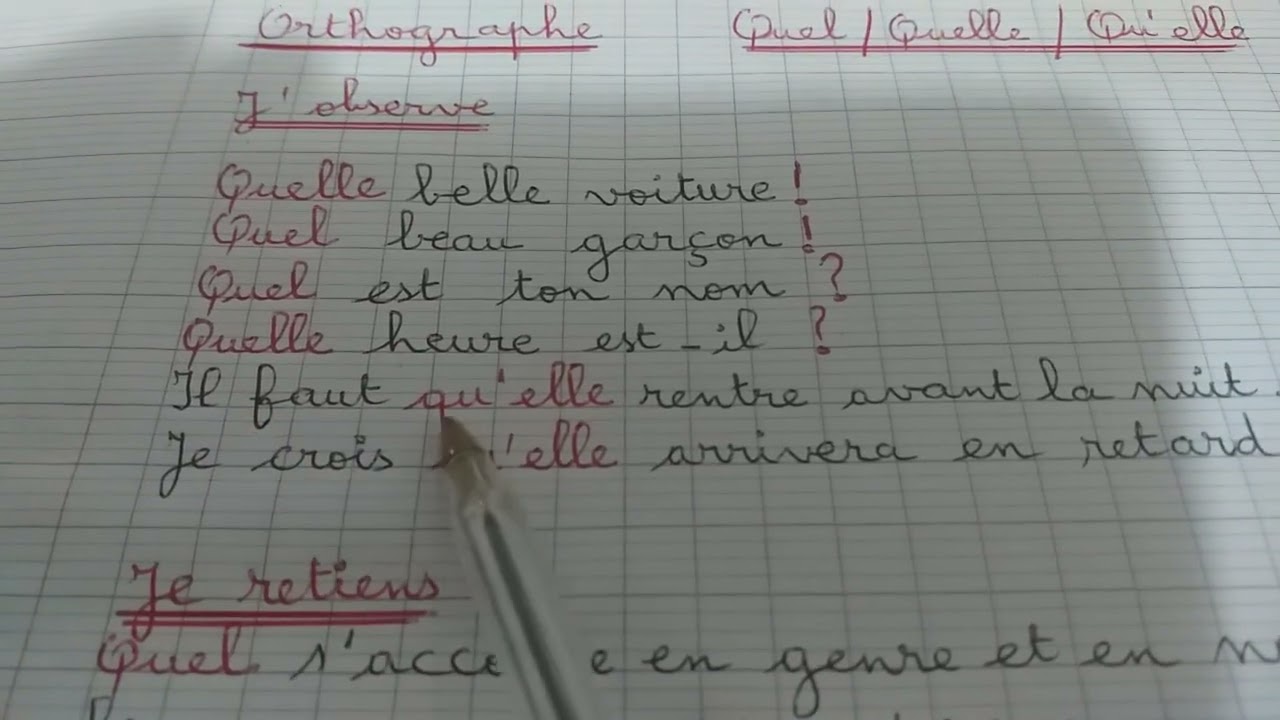 Orthographe Quel / Quelle / Qu'elle
J'observe
Quelle belle voiture !
Quel beau garçon !
Quel est ton nom ?
Quelle heure est-il ?
Il faut qu'elle rentre avant la nuit.
Je crois qu'elle arrivera en retard
Je retiens
Quel s'accorde en genre et en